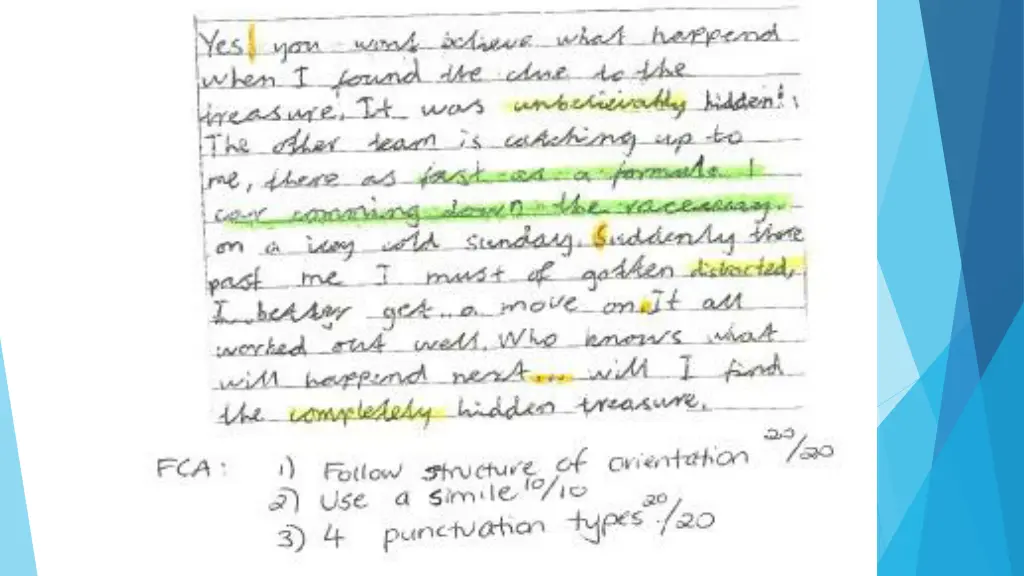 Yes! you wont believe what happend
when I found the clue to the
treasure. It was unbelievably hidden!
The other team is catching up to
me, there as fast as a formula 1
car comming down the raceway.
on a icey cold sunday. Suddenly there
past me I must of gotten distracted,
I better get a move on. It all
worked out well. Who knows what
will happend next... will I find
the completely hidden treasure.
FCA: 1) Follow structure of orientation 20/20
2) Use a simile 10/10
3) 4 punctuation types 20/20